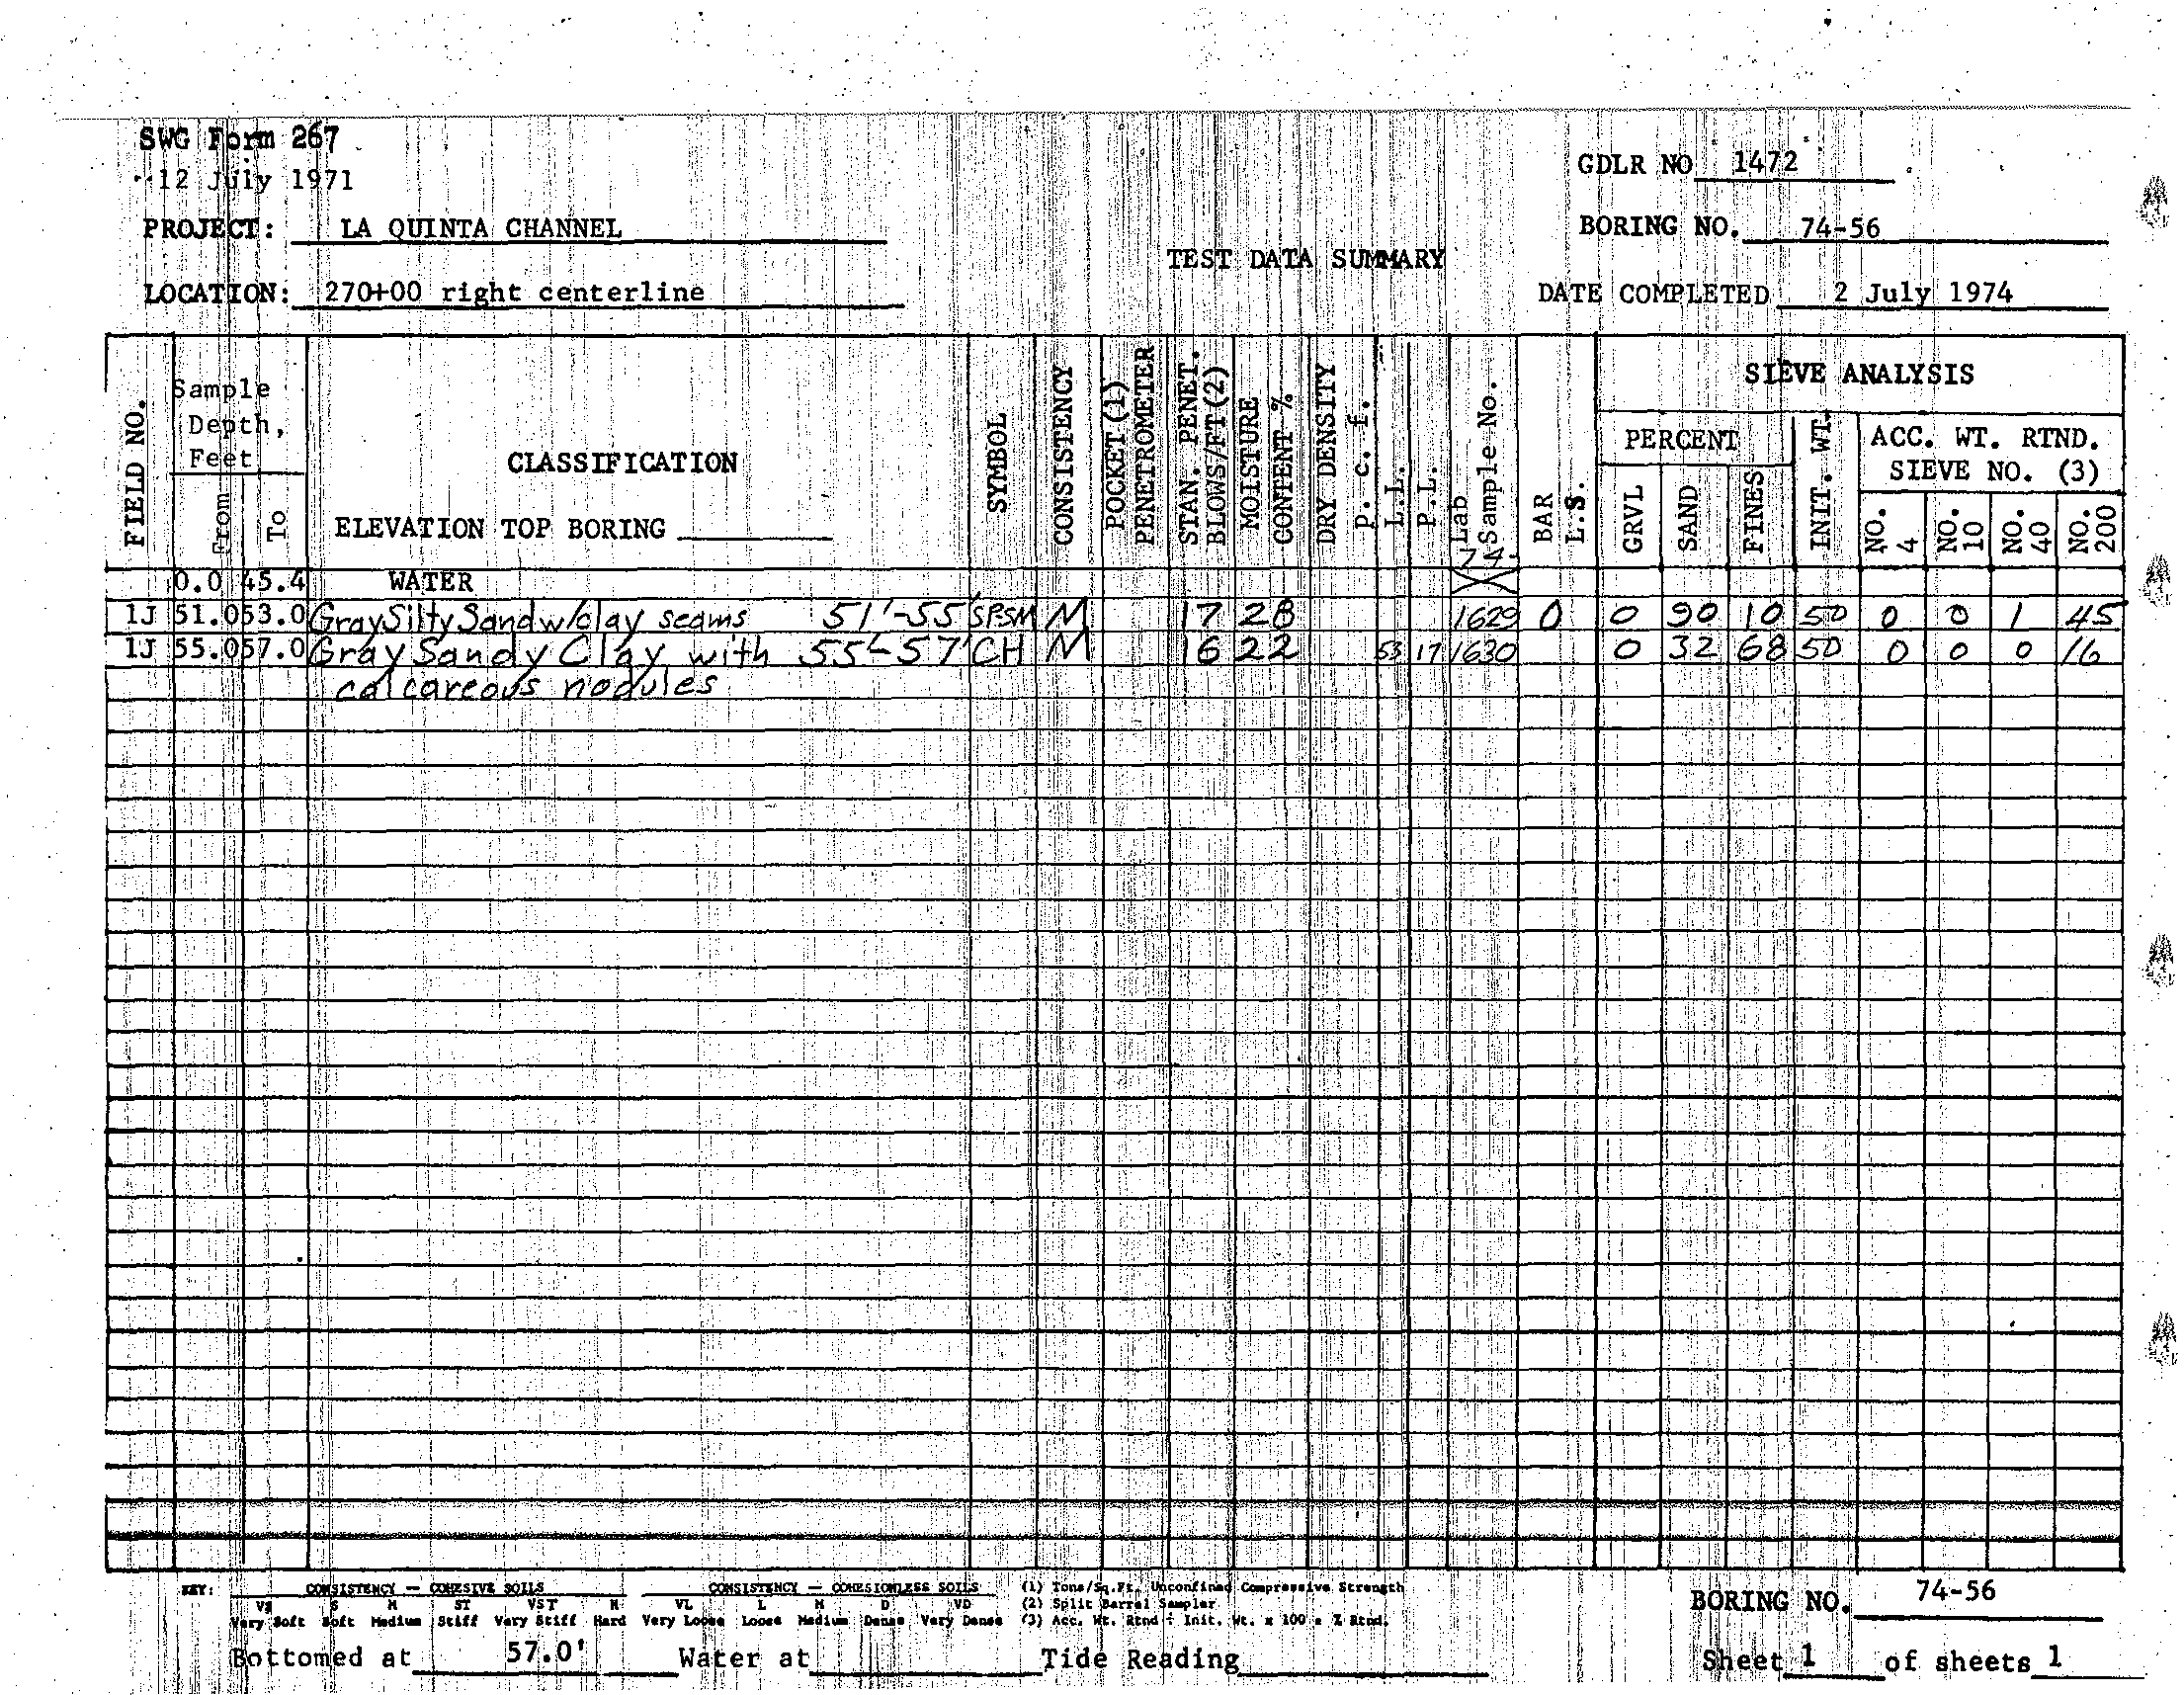 SWG Form 267
12 July 1971
GDLR NO 1472
PROJECT: LA QUINTA CHANNEL
BORING NO. 74-56
TEST DATA SUMMARY
LOCATION: 270+00 right centerline
DATE COMPLETED 2 July 1974
FIELD NO.
Sample Depth, Feet
From
To
CLASSIFICATION
ELEVATION TOP BORING
SYMBOL
CONSISTENCY
POCKET (1) PENETROMETER
STAN. PENET. BLOWS/FT(2)
MOISTURE CONTENT %
DRY DENSITY p. c. f.
L.L.
P.L.
Lab Sample No.
74-
BAR L.S.
SIEVE ANALYSIS
PERCENT
GRVL
SAND
FINES
INIT. WT.
ACC. WT. RTND. SIEVE NO. (3)
NO. 4
NO. 10
NO. 40
NO. 200
0.0 45.4 WATER
1J 51.0 53.0 Gray Silty Sand w/clay seams 51'-55' SPSM M 17 28 1629 0 0 90 10 50 0 0 1 45
1J 55.0 57.0 Gray Sandy Clay with 55'-57' CH M 16 22 53 17 1630 0 32 68 50 0 0 0 16
calcareous nodules
KEY: CONSISTENCY — COHESIVE SOILS CONSISTENCY — COHESIONLESS SOILS (1) Tons/Sq.Ft. Unconfined Compressive Strength
VS S M ST VST H VL L M D VD (2) Split Barrel Sampler
Very Soft Soft Medium Stiff Very Stiff Hard Very Loose Loose Medium Dense Very Dense (3) Acc. Wt. Rtnd ÷ Init. Wt. x 100 = % Rtnd.
BORING NO. 74-56
Bottomed at 57.0' Water at Tide Reading Sheet 1 of sheets 1